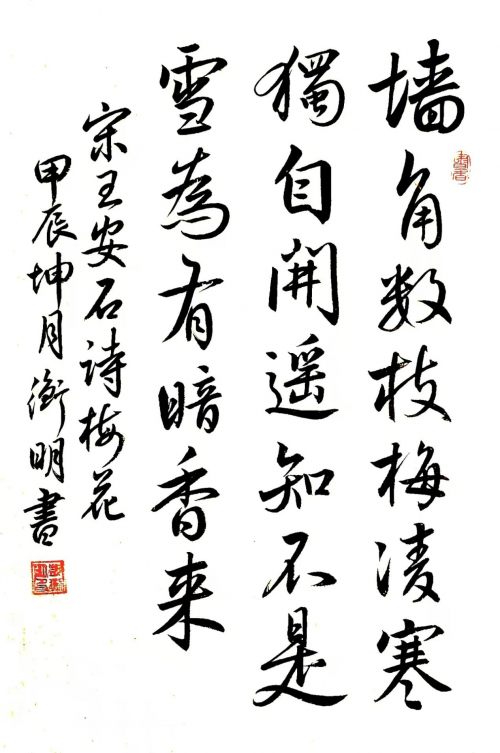 墙角数枝梅凌寒
獨自開遥知不是
雪為有暗香来
宋王安石詩梅花
甲辰坤月衛明書